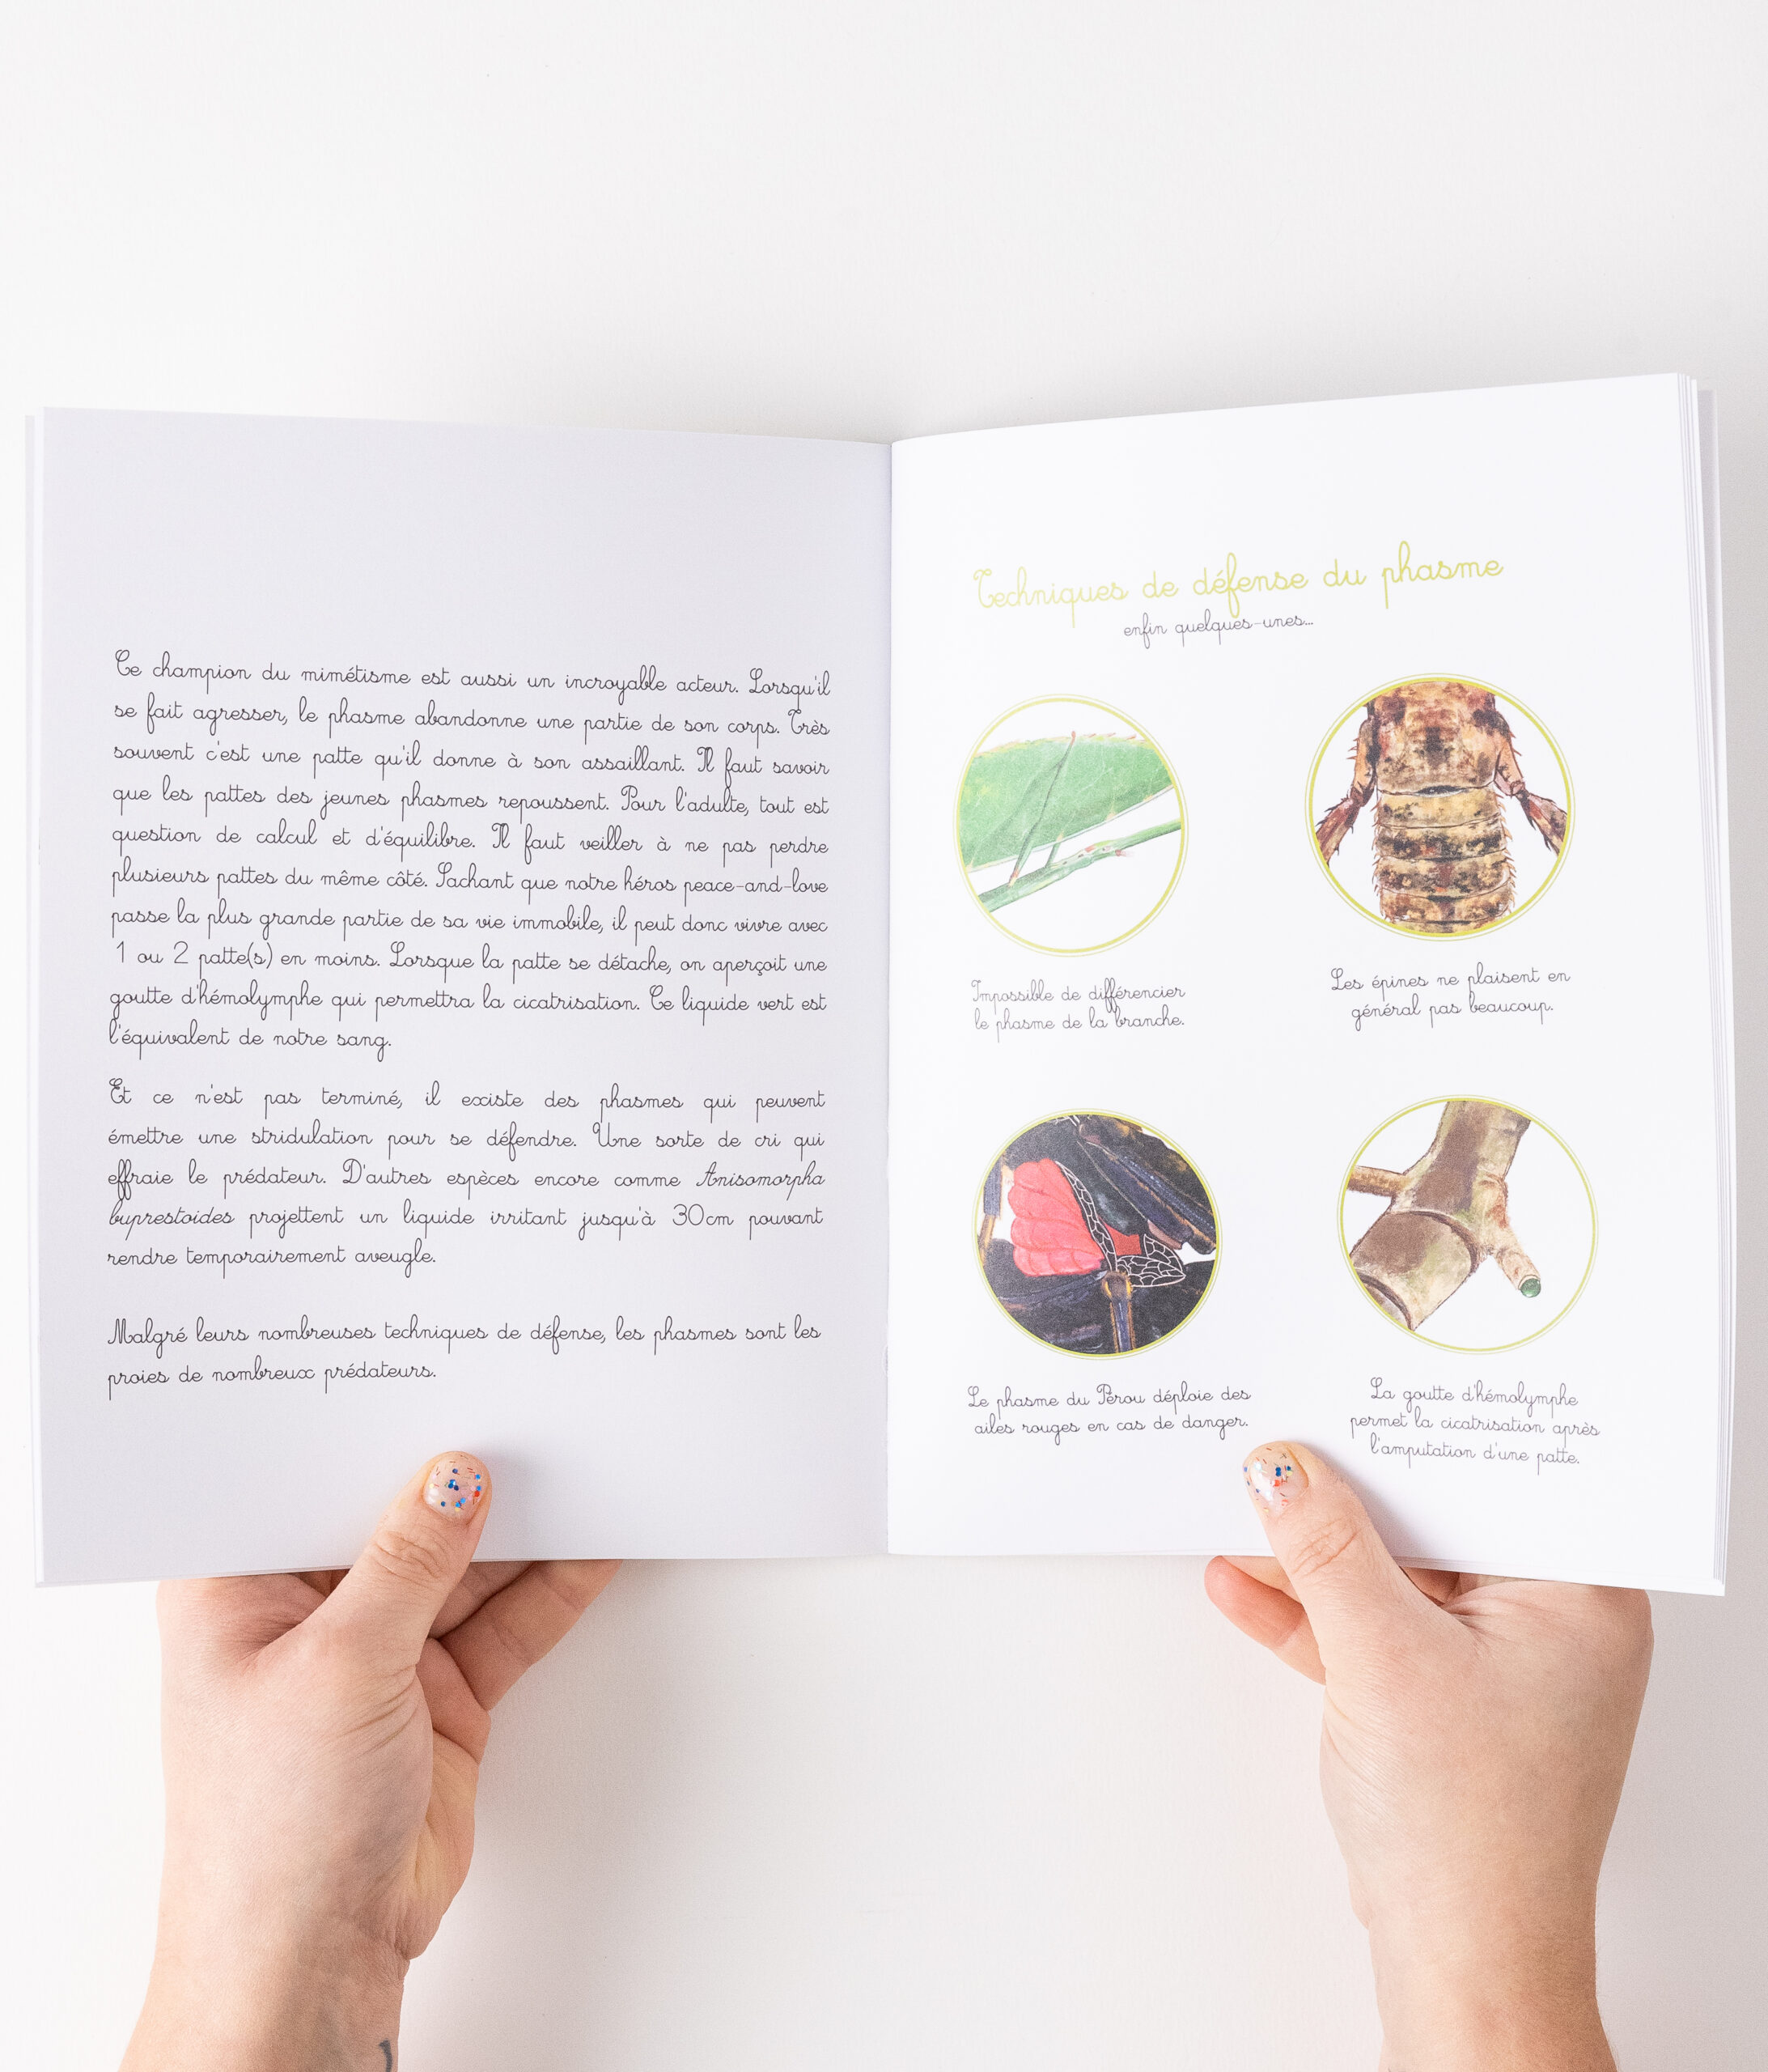 Ce champion du mimétisme est aussi un incroyable acteur. Lorsqu'il
se fait agresser, le phasme abandonne une partie de son corps. Très
souvent c'est une patte qu'il donne à son assaillant. Il faut savoir
que les pattes des jeunes phasmes repoussent. Pour l'adulte, tout est
question de calcul et d'équilibre. Il faut veiller à ne pas perdre
plusieurs pattes du même côté. Sachant que notre héros peace-and-love
passe la plus grande partie de sa vie immobile, il peut donc vivre avec
1 ou 2 patte(s) en moins. Lorsque la patte se détache, on aperçoit une
goutte d'hémolymphe qui permettra la cicatrisation. Ce liquide vert est
l'équivalent de notre sang.
Et ce n'est pas terminé, il existe des phasmes qui peuvent
émettre une stridulation pour se défendre. Une sorte de cri qui
effraie le prédateur. D'autres espèces encore comme Anisomorpha
buprestoides projettent un liquide irritant jusqu'à 30cm pouvant
rendre temporairement aveugle.
Malgré leurs nombreuses techniques de défense, les phasmes sont les
proies de nombreux prédateurs.
Techniques de défense du phasme
enfin quelques-unes...
Impossible de différencier
le phasme de la branche.
Les épines ne plaisent en
général pas beaucoup.
Le phasme du Pérou déploie des
ailes rouges en cas de danger.
La goutte d'hémolymphe
permet la cicatrisation après
l'amputation d'une patte.